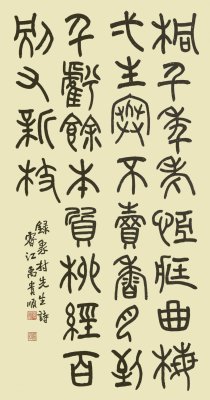 桐千年老恒藏曲梅
弌生寒不賣香月到
千虧餘本質柳經百
別又新枝
錄象村先生詩
睿江禹貴順